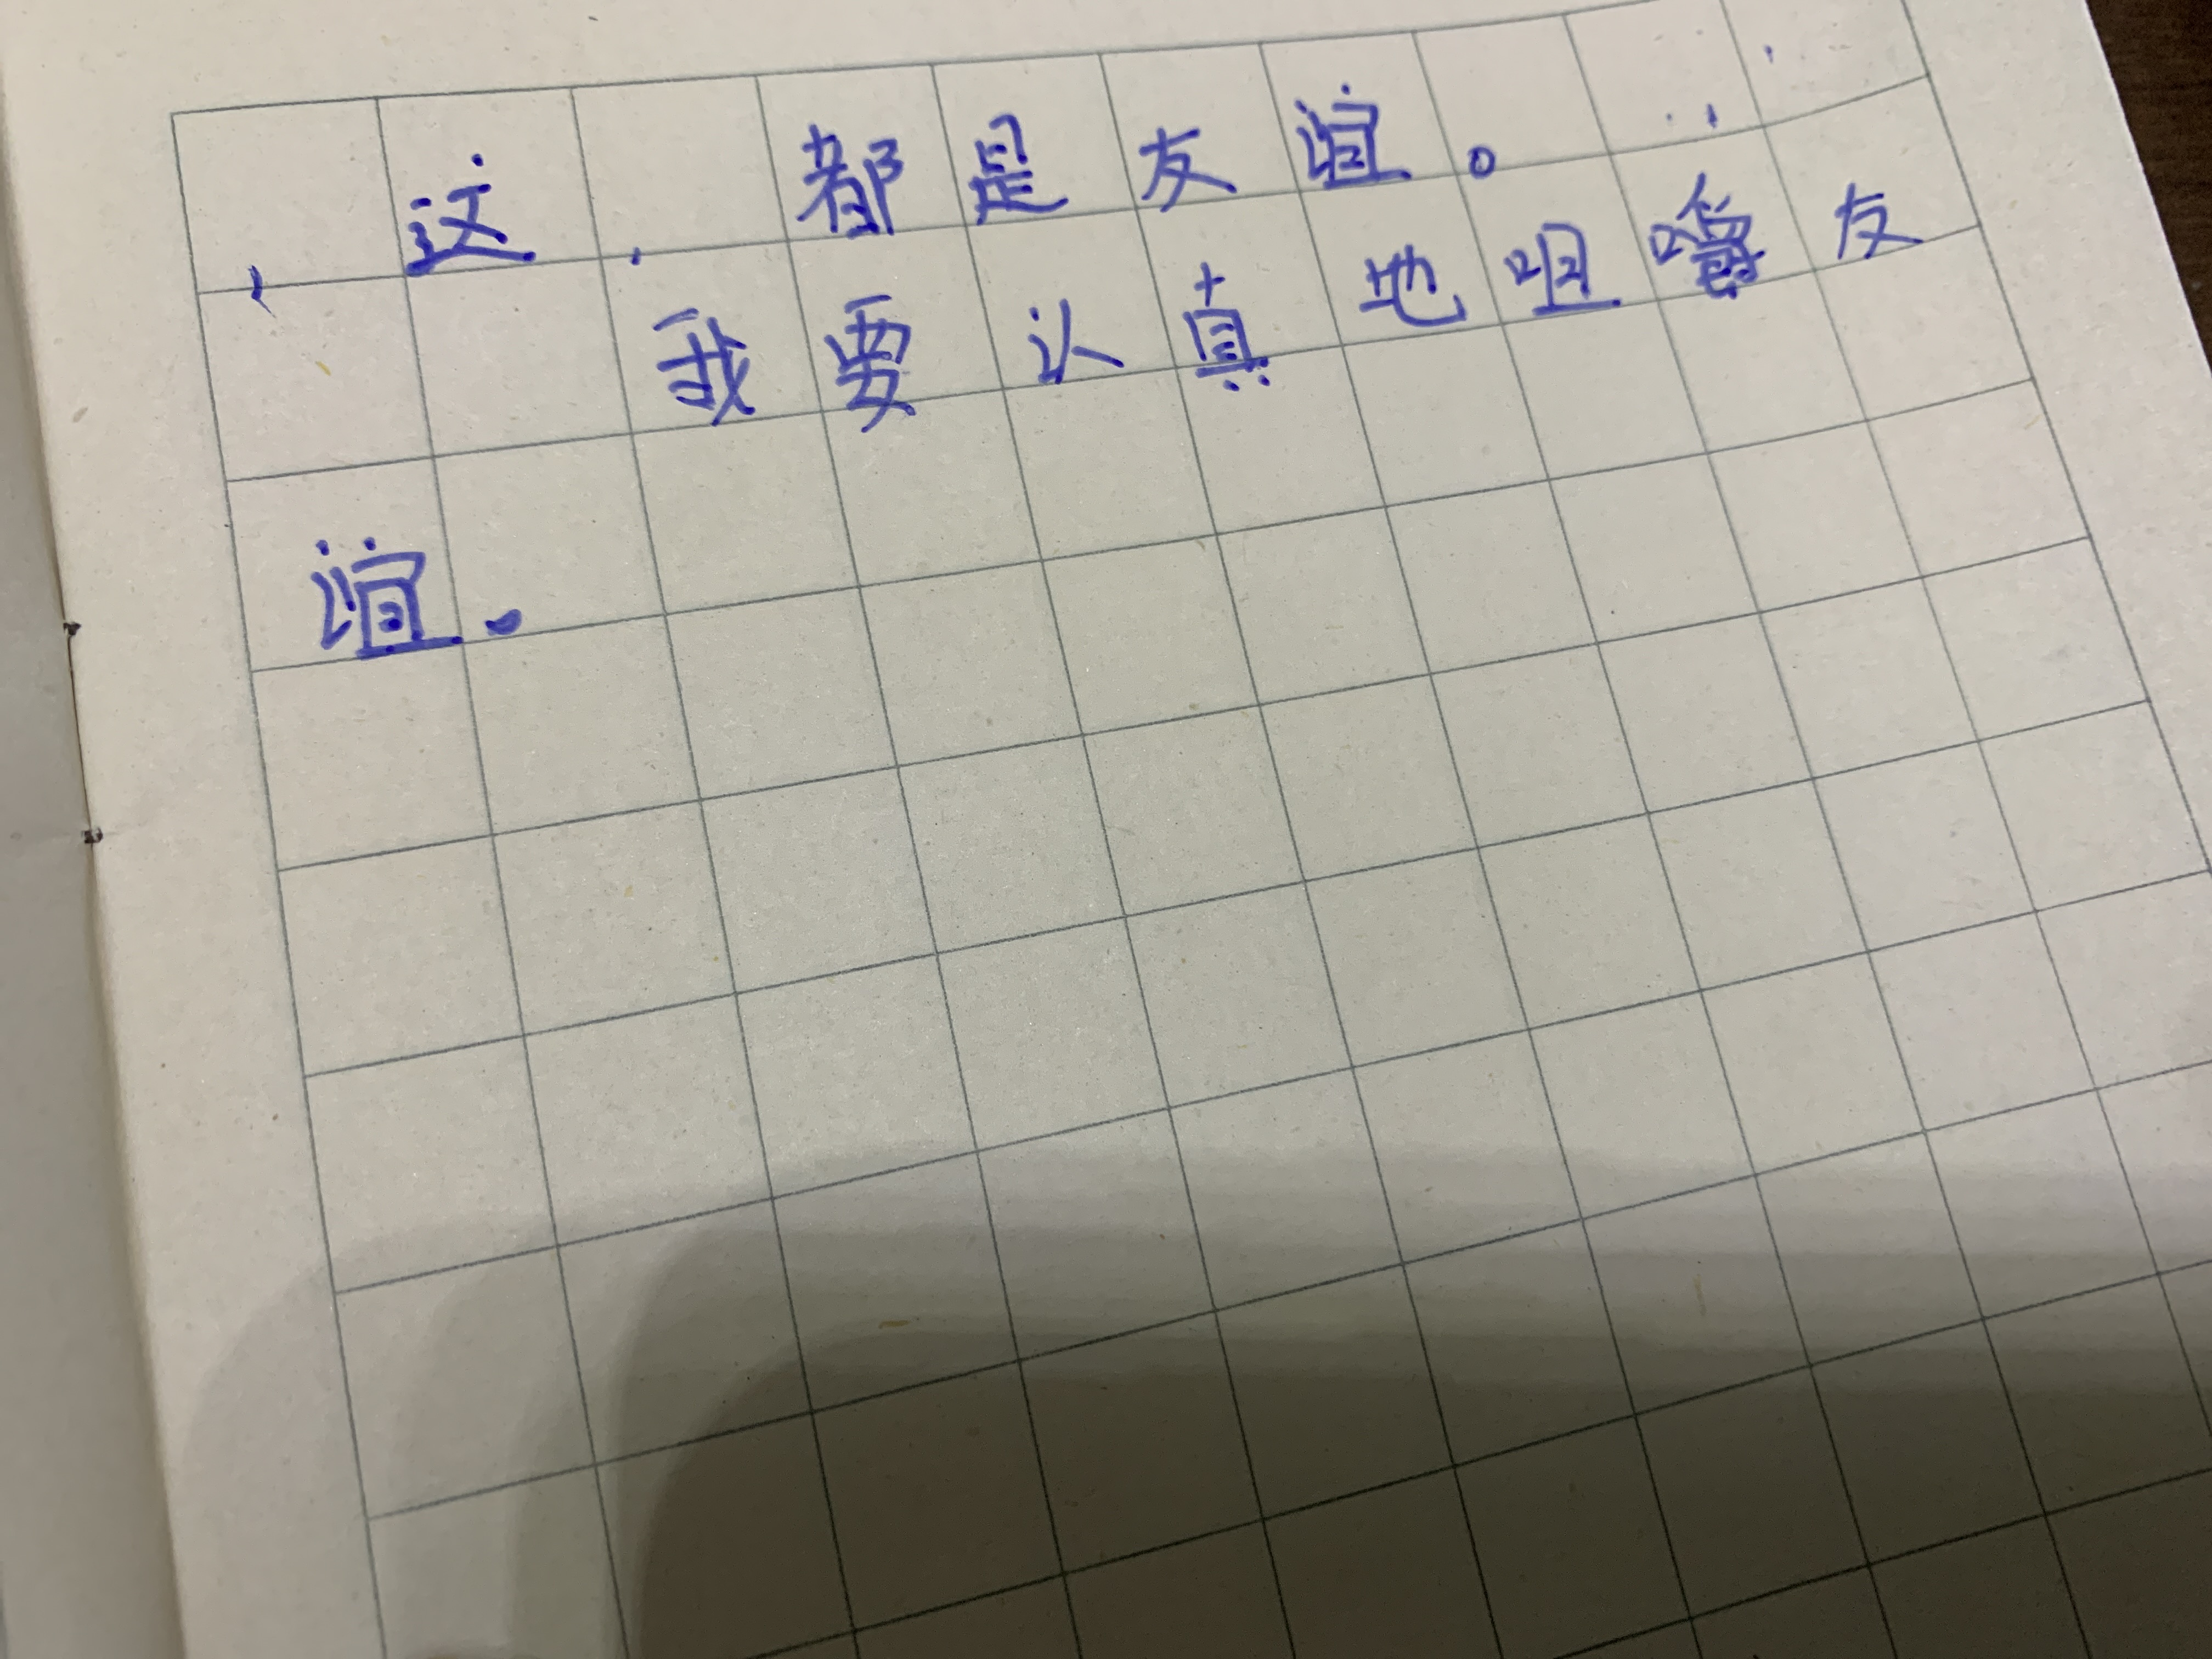 ，这，都是友谊。
我要认真地咀嚼友
谊。